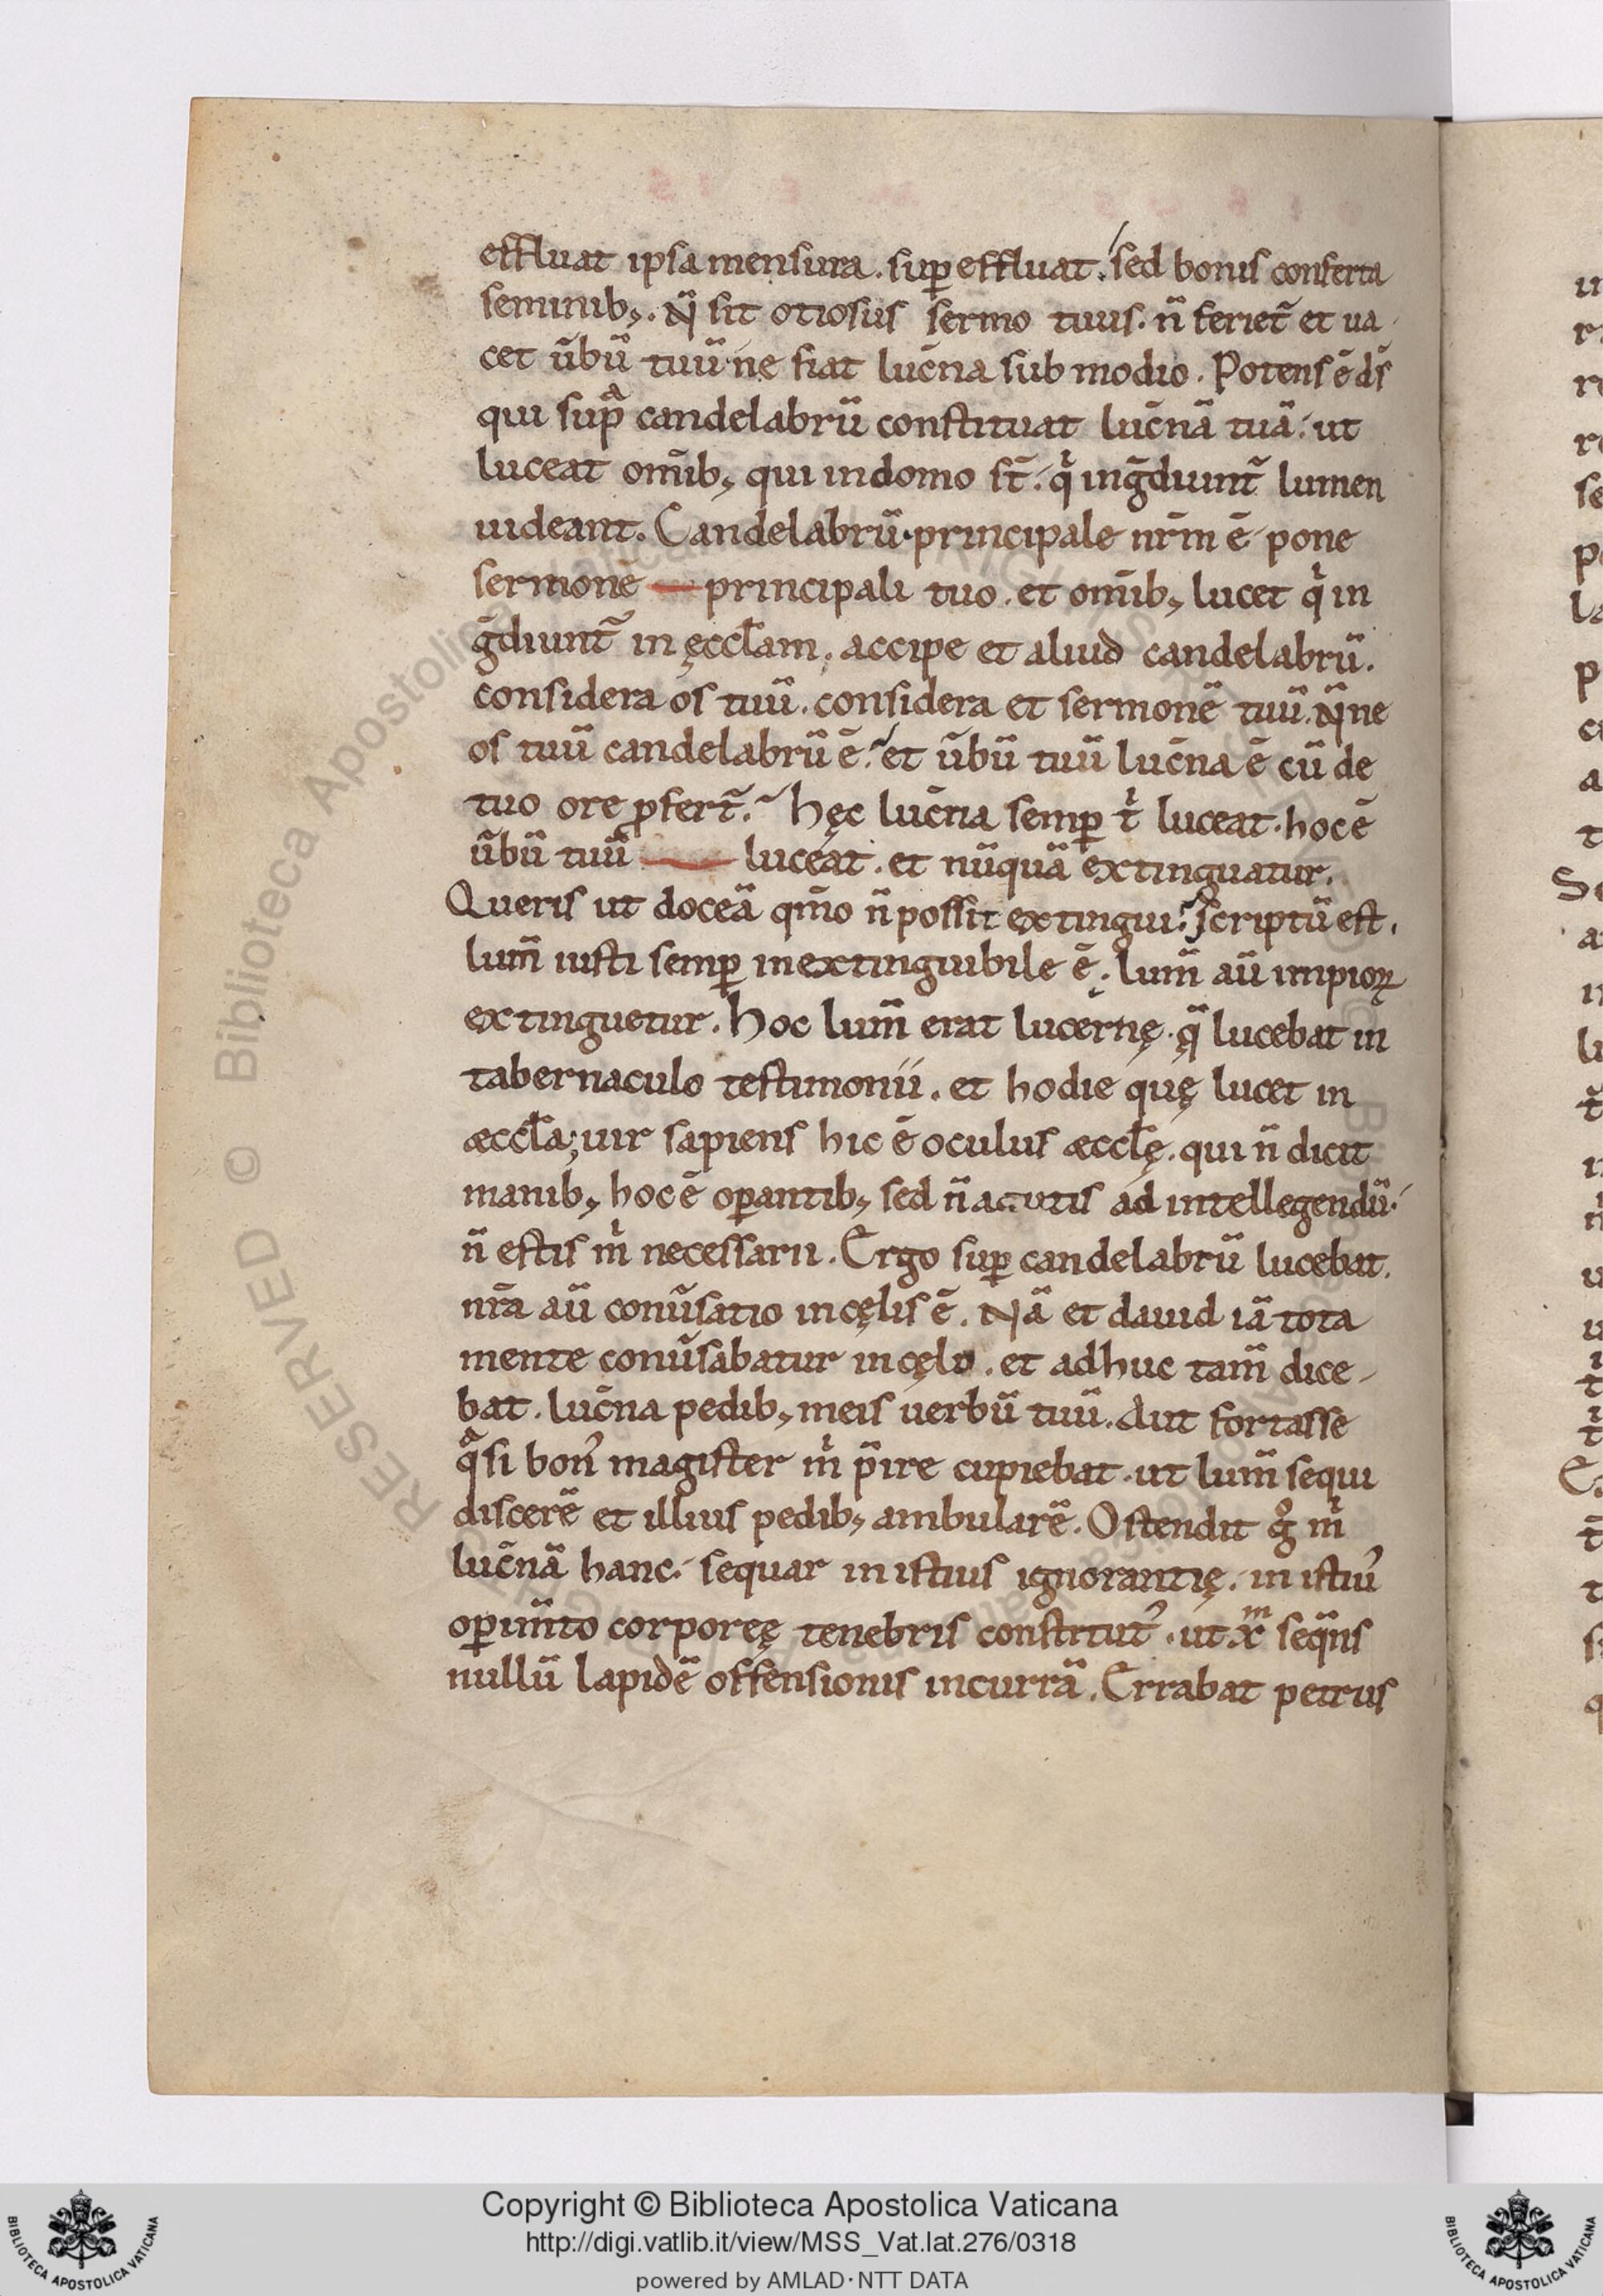 effluat ipsa mensura. suꝑ effluat. sed bonis conferta
seminib;. N̄ sit otiosus sermo tuus. n̄ ferieť et ua
cet ūbū tuū ne fiat luc̄na sub modio. Potens ē ds̄
qui supͣ candelabrū constituat luc̄nā tuā. ut
luceat om̄ib; qui in domo st̄. qͥ ing̃diunt̃ lumen
uideant. Candelabrū principale nr̄m ē pone
sermonē principali tuo. et om̄ib; lucet qͥ in
g̃diunt̃ in ęccl̄am. accipe et aliud candelabrū.
considera os tuū. considera et sermonē tuū. N̄ne
os tuū candelabrū ē. et ūbū tuū luc̄na ē cū de
tuo ore ꝓfert̃. hęc luc̄na semꝑ tͥ luceat. hoc ē
ūbū tuū luceat. et nūquā extinguatur.
Queris ut doceā qm̄o n̄ possit extingui. scriptū est.
lum̄ iusti semꝑ inextinguibile ē. lum̄ aū impioꝝ
extinguetur. hoc lum̄ erat lucernę. q̄ lucebat in
tabernaculo testimonii. et hodie quę lucet in
æccl̄a; uir sapiens hic ē oculus æccl̄ę. qui n̄ dicit
manib; hoc ē oꝑantib; sed n̄ acutis ad intellegendū.
n̄ estis mͥ necessarii. Ergo suꝑ candelabrū lucebat.
nr̄a aū conūsatio in cęlis ē. Nā et dauid iā tota
mente conūsabatur in cęlo. et adhuc tam̄ dice
bat. luc̄na pedib; meis uerbū tuū. Aut fortasse
qͣsi bon᾽ magister mͥ p̄ire cupiebat. ut lum̄ sequi
discerē et illius pedib; ambularē. Ostendit gͦ mͥ
luc̄nā hanc. sequar in istius ignorantię. in istiu᾽
oꝑim̄to corporeę tenebris constitut᾽. ut xͫ seq̄ns
nullū lapidē offensionis incurrā. Errabat petrus
Copyright © Biblioteca Apostolica Vaticana
http://digi.vatlib.it/view/MSS_Vat.lat.276/0318
powered by AMLAD·NTT DATA
BIBLIOTECA APOSTOLICA VATICANA
BIBLIOTECA APOSTOLICA VATICANA